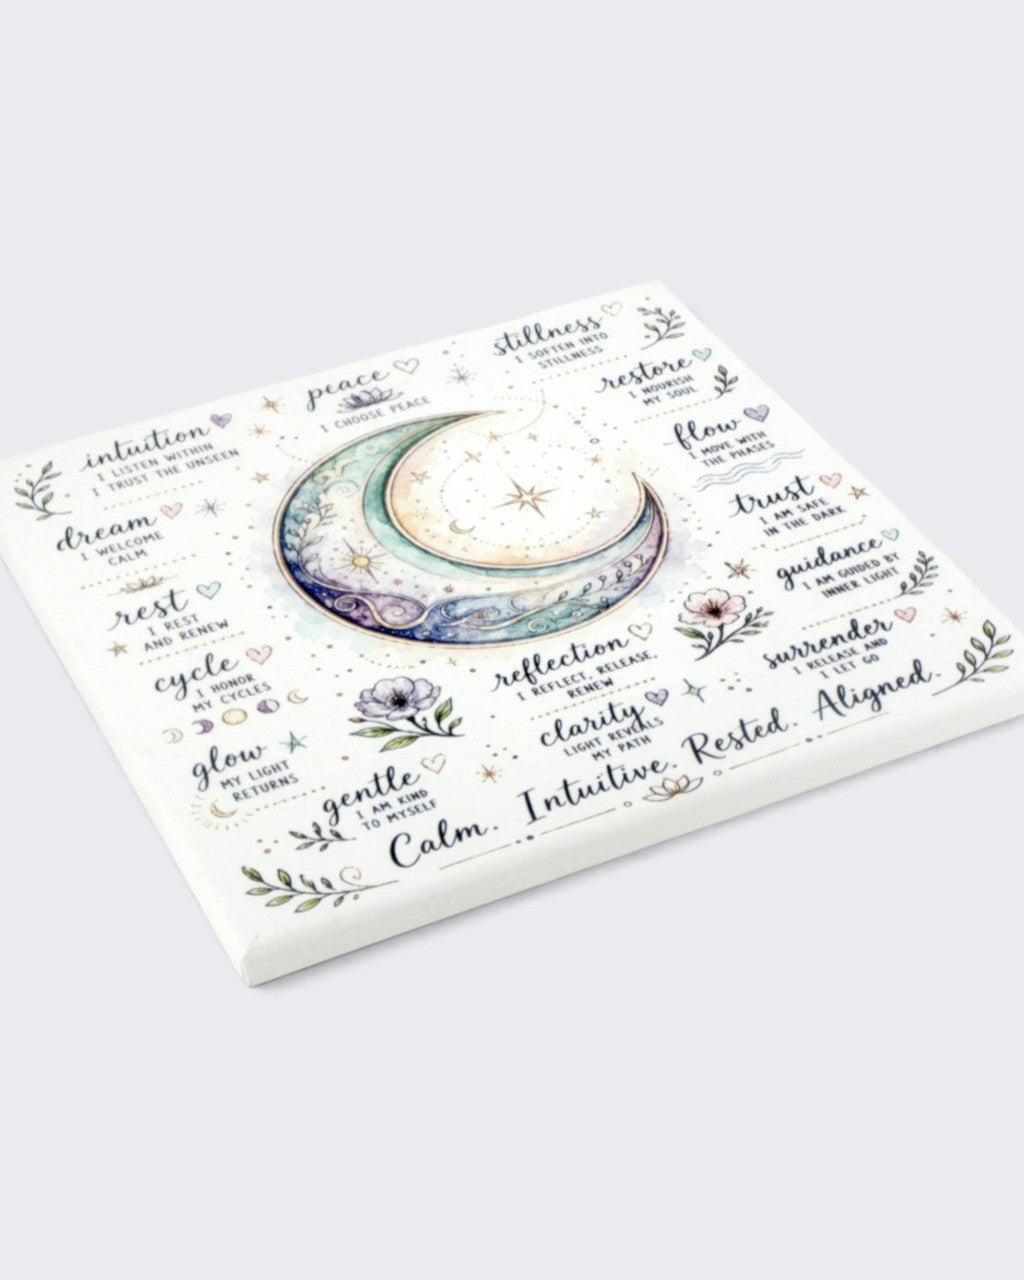 stillness
I SOFTEN INTO
STILLNESS
peace
I CHOOSE PEACE
restore
I NOURISH
MY SOUL
intuition
I LISTEN WITHIN
I TRUST THE UNSEEN
flow
I MOVE WITH
THE PHASES
dream
I WELCOME
CALM
trust
I AM SAFE
IN THE DARK
rest
I REST
AND RENEW
guidance
I AM GUIDED BY
INNER LIGHT
cycle
I HONOR
MY CYCLES
reflection
I REFLECT, RELEASE,
RENEW
surrender
I RELEASE AND
I LET GO
glow
MY LIGHT
RETURNS
clarity
LIGHT REVEALS
MY PATH
gentle
I AM KIND
TO MYSELF
Calm. Intuitive. Rested. Aligned.